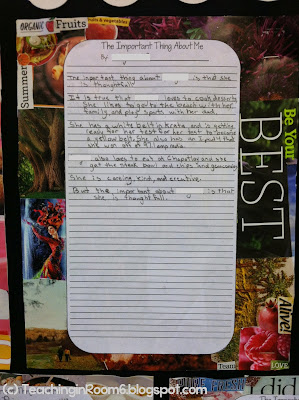 ORGANIC
Fruits
fruits & vegetables
Summer
The Important Thing About Me
By
The important thing about y is that she
is thoughtfull.
It is true that y loves to cook desserts
She likes to go to the beach with her
family, and play sports with her dad.
She has a white belt in karate and is getting
ready for her test for her belt to become
a yellow belt. She also has an Ipod 4 that
she won off of 97.1 amp radio.
y also loves to eat at Chapotles and she
get the steak bowl and chips and guacamoly
She is careing, kind, and creative.
But the important about y is that
she is thoughtfull.
Be Your
BEST
Alive!
Team
LOVE
FRESH
did
(c) TeachinginRoom6.blogspot.com